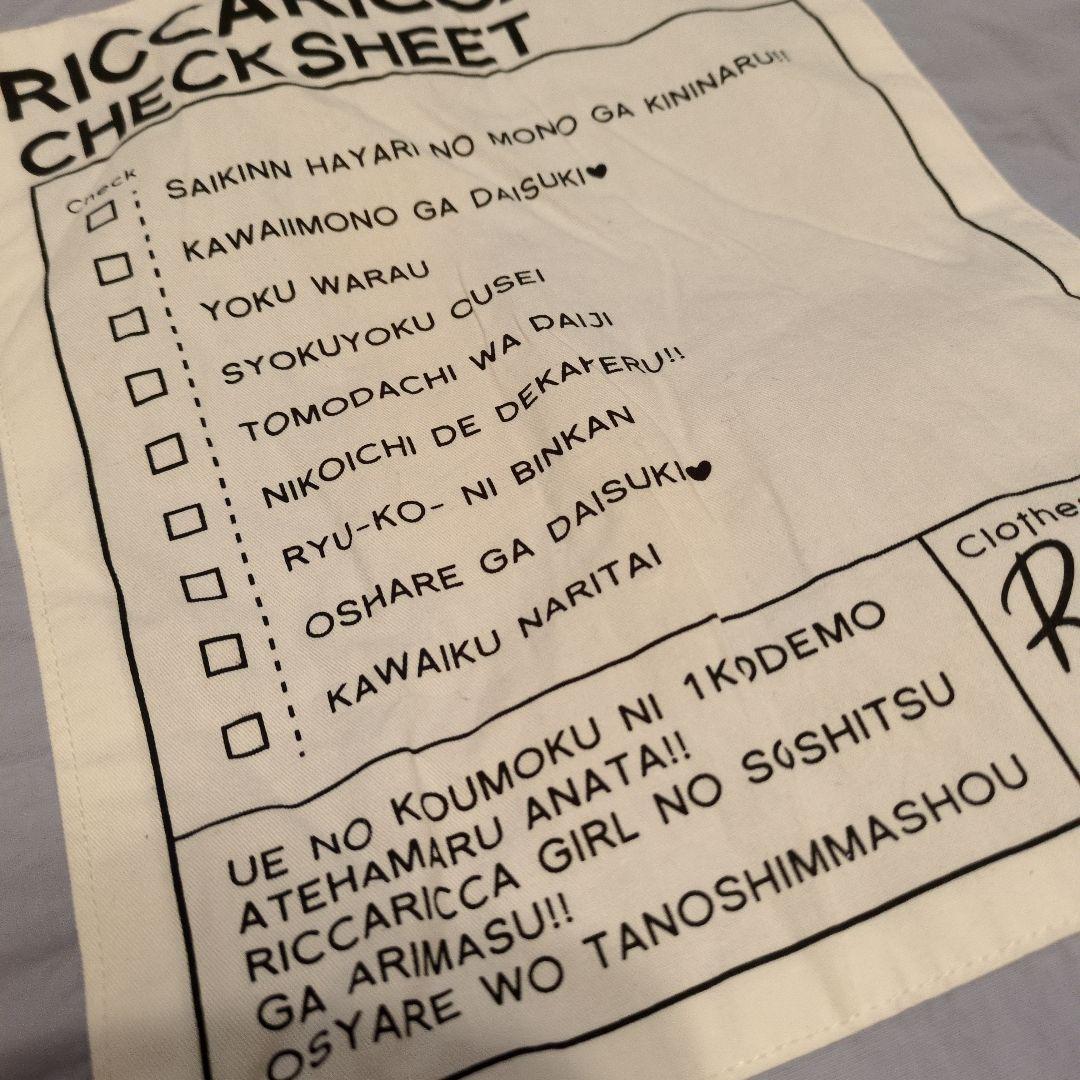 RICCARICCA
CHECK SHEET
Check
SAIKINN HAYARI NO MONO GA KININARU!!
KAWAIIMONO GA DAISUKI♥
YOKU WARAU
SYOKUYOKU OUSEI
TOMODACHI WA DAIJI
NIKOICHI DE DEKAKERU!!
RYU-KO- NI BINKAN
OSHARE GA DAISUKI♥
KAWAIKU NARITAI
UE NO KOUMOKU NI 1KODEMO
ATEHAMARU ANATA!!
RICCARICCA GIRL NO SOSHITSU
GA ARIMASU!!
OSYARE WO TANOSHIMMASHOU
Clothe
R